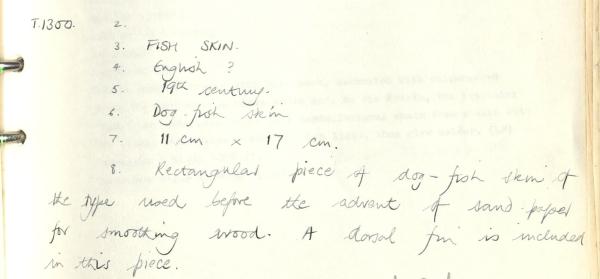 T.1300. 2.
3. FISH SKIN.
4. English ?
5. 19th century.
6. Dog-fish skin
7. 11 cm x 17 cm.
8. Rectangular piece of dog-fish skin of
the type used before the advent of sand-paper
for smoothing wood. A dorsal fin is included
in this piece.